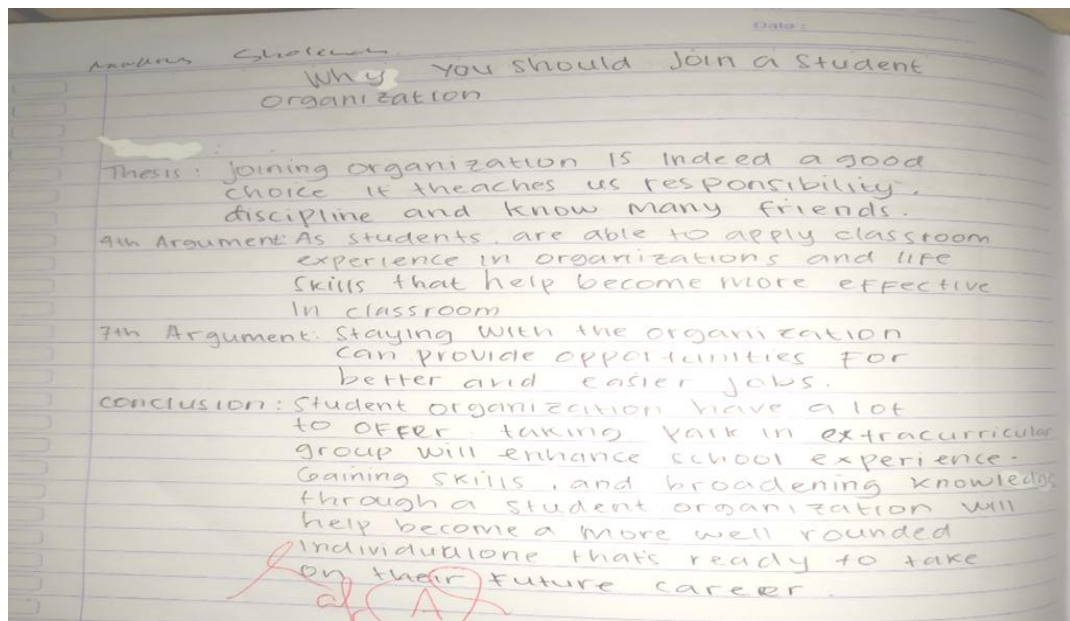 Date :
Why You Should Join a Student
organization
Thesis : Joining organization is indeed a good
choice it theaches us responsibility,
discipline and know many friends.
9th Argument: As students, are able to apply classroom
experience in organizations and life
skills that help become more effective
in classroom
7th Argument: Staying with the organization
can provide opportunities for
better and easier jobs.
conclusion : Student organization have a lot
to offer. taking Park in extracurricular
group will enhance school experience.
Gaining skills, and broadening knowledge
through a student organization will
help become a more well rounded
individualone that's ready to take
on their future career.
A